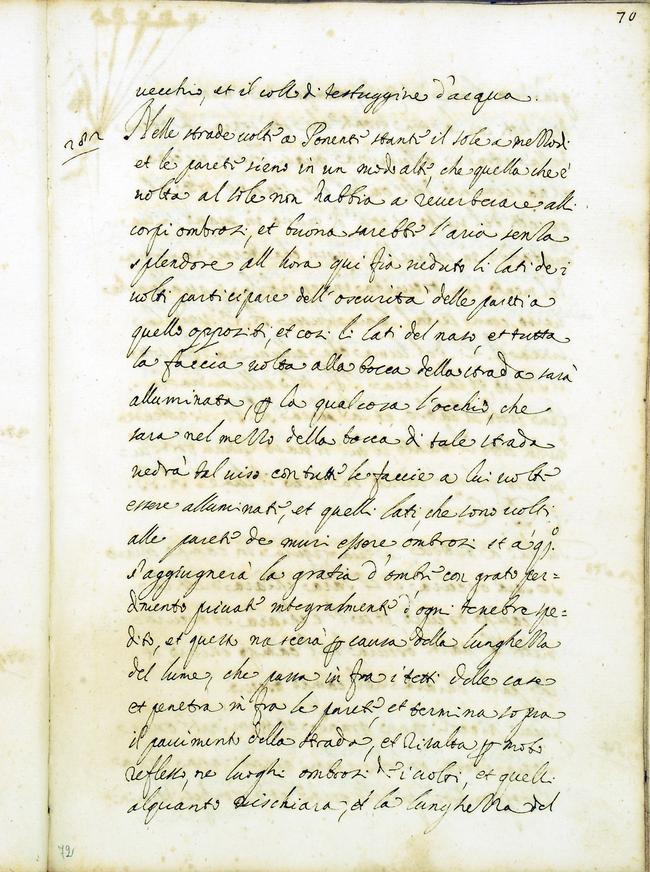 70
vecchio, et il coll di testuggine d'acqua.
282
Nelle strade volte a Ponente stante il sole a mezzodi
et le parete sieno in un modo alte, che quella che è
volta al sole non habbia a reuerberare alli
corpi ombrosi, et buona sarebbe l'aria senza
splendore all hora qui fia ueduto li lati de i
volti participare dell'oscurità delle pareti a
quello opposti, et cosi li lati del naso, et tutta
la faccia volta alla bocca della strada sarà
alluminata, ꝑ la qualcosa l'occhio, che
sara nel mezzo della bocca di tale strada
uedrà tal uiso con tutte le faccie a lui uolte
essere alluminate, et quelli lati che sono uolti
alle parete de muri essere ombrosi et a qsto
s'aggiugnerà la gratia d'ombre con grato per=
dimento priuate integralmente d'ogni tenebre spe=
dito, et questo nascerà ꝑ causa della lunghezza
del lume, che passa in fra i tetti delle case
et penetra in fra le parete, et termina sopra
il pauimento della strada, et risalta ꝑ moto
reflesso, ne luoghi ombrosi de i uolti, et quelli
alquanto rischiara, et la lunghezza del
72